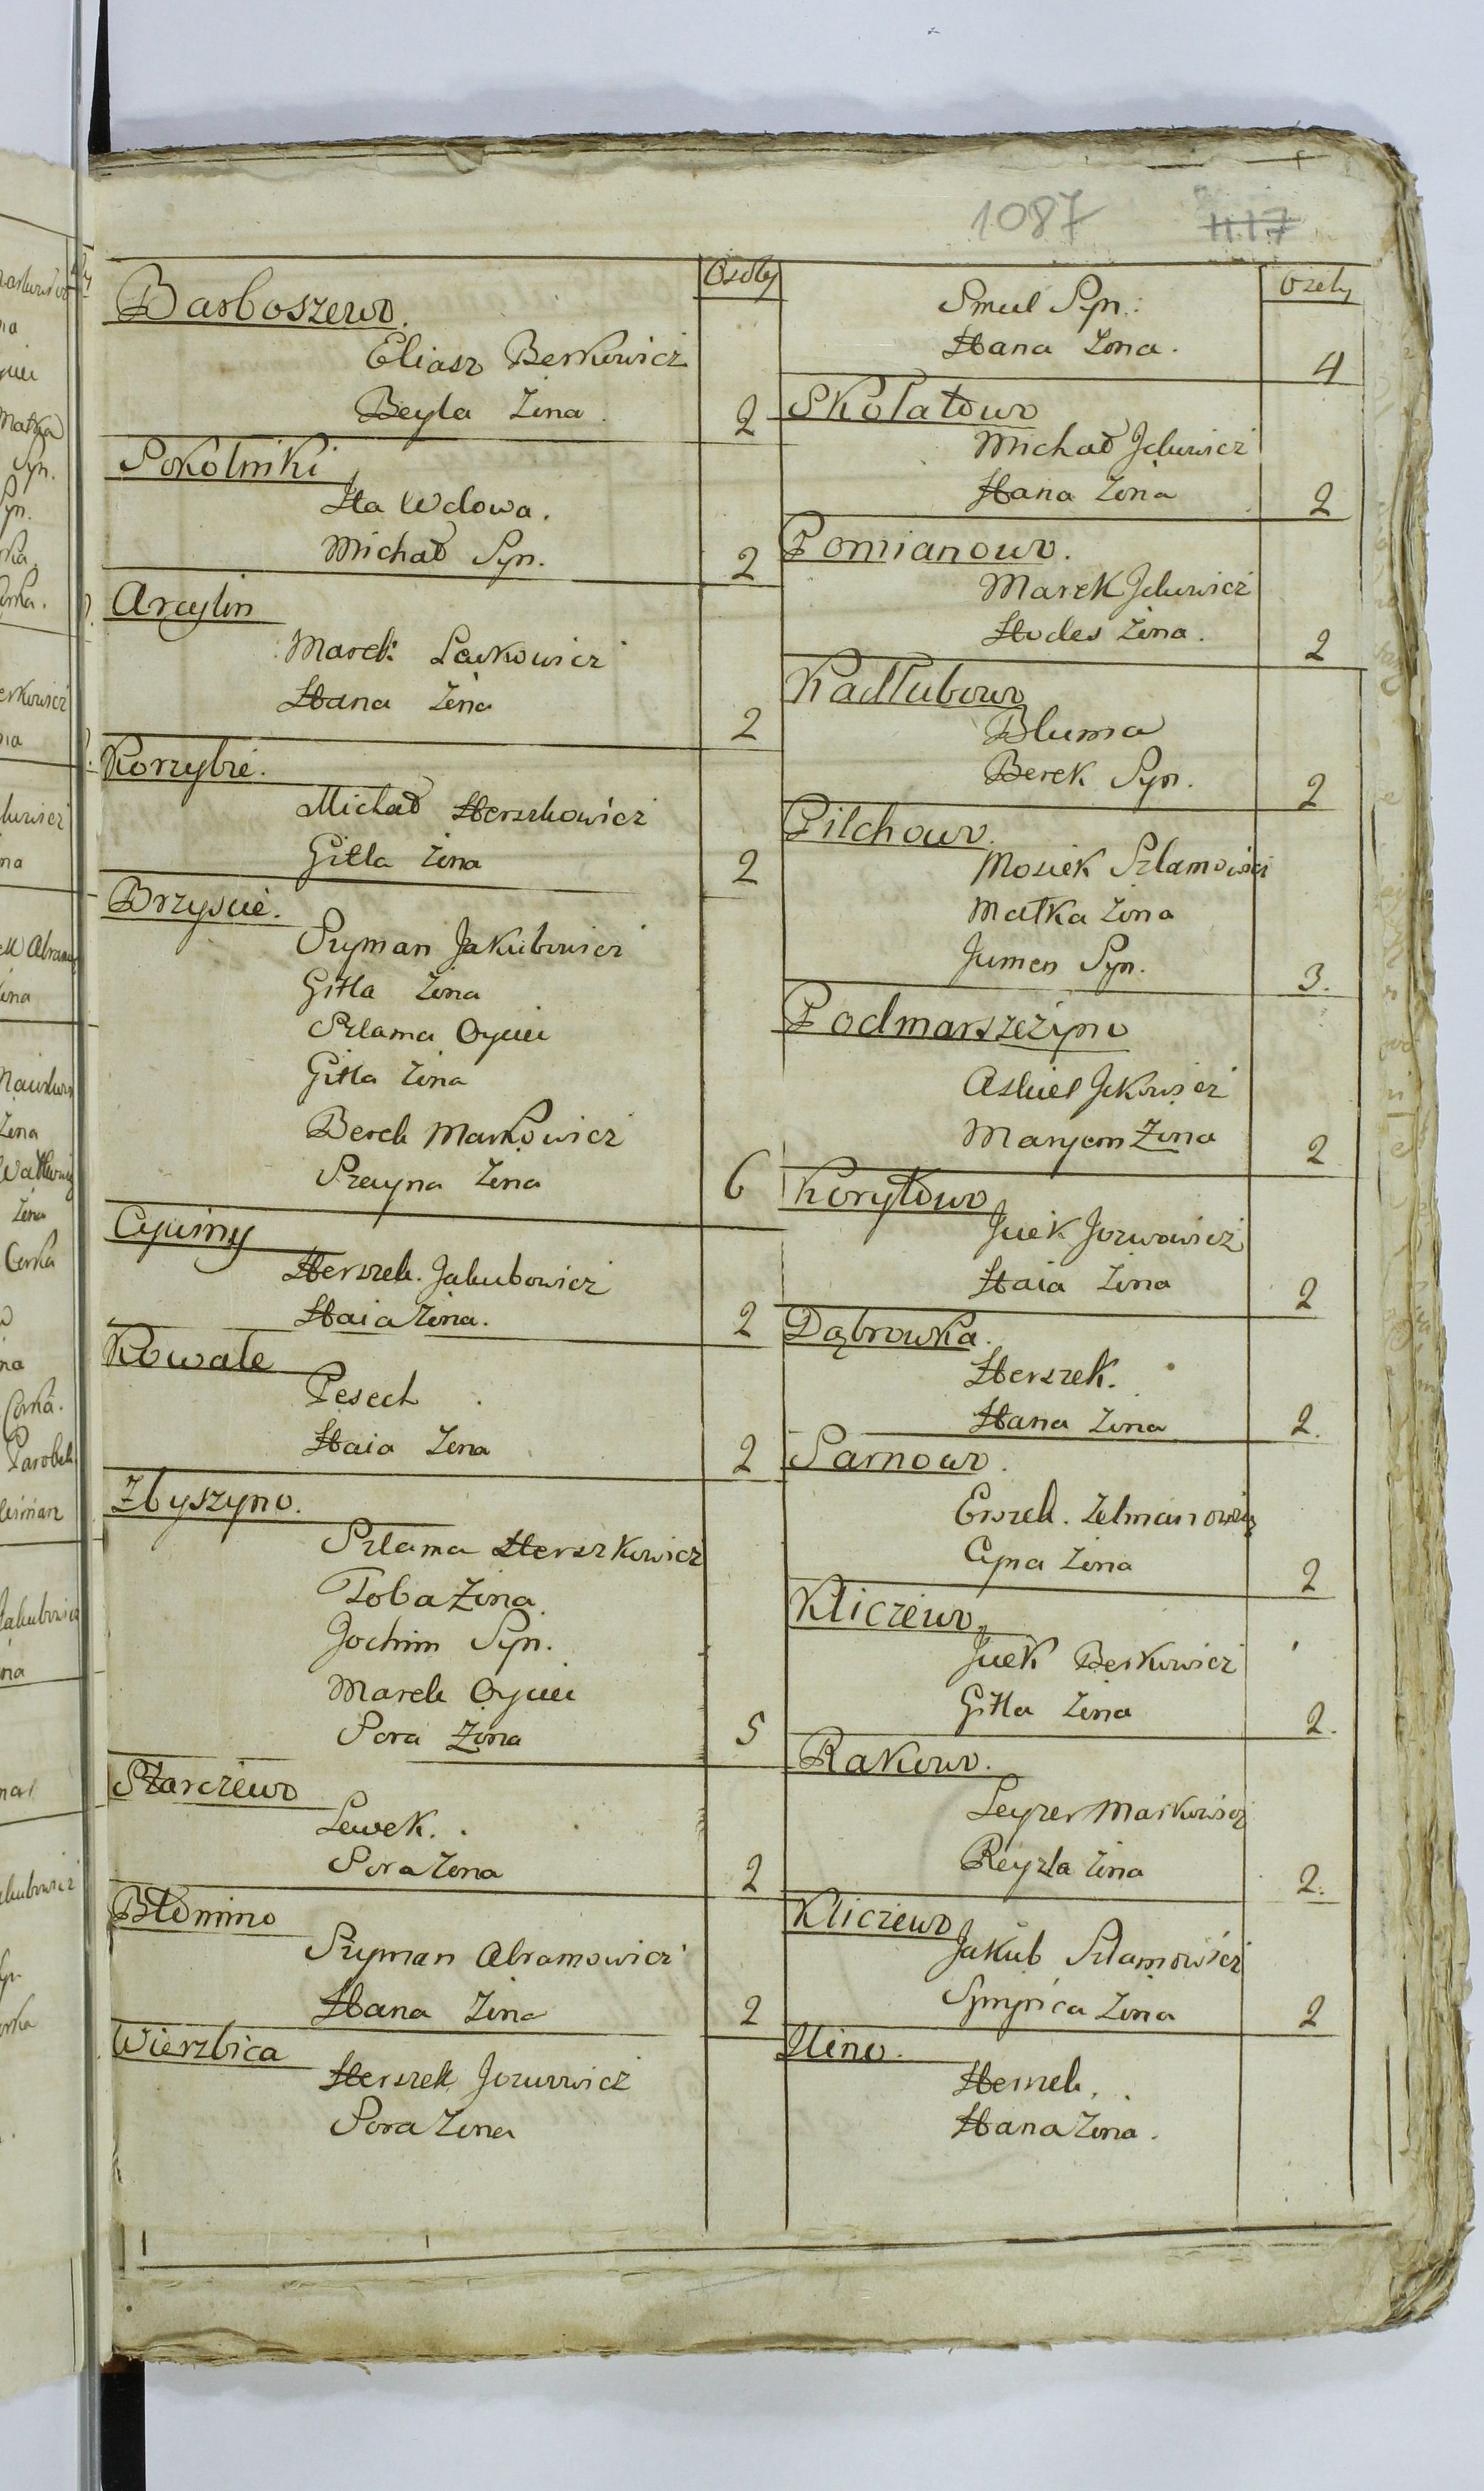 1087 1117
Osoby
Barboszewo.
Eliasz Berkowicz
Beyla Żona. 2
Sokolniki
Ita Wdowa.
Michał Syn. 2
Arcylin
Marek Lewkowicz
Hana Żona 2
Korzybie.
Michał Herszkowicz
Gitla Żona 2
Brzyscie.
Szyman Jakubowicz
Gitla Żona
Szlama Oyciec
Gitla Żona
Berek Markowicz
Szayna Żona 6
Herszek Jakubowicz
Haia Żona. 2
Kowale
Pesech
Haia Żona 2
Zbyszyno.
Szlama Herszkowicz
Toba Żona
Jochim Syn.
Marek Oyciec
Sora Żona 5
Starczewo
Lewek.
Sora Żona 2
Błomino
Szyman Abramowicz
Hana Żona 2
Wierzbica
Herszek Jozwowicz
Sora Żona
Osoby
Smul Syn.
Hana Żona. 4
Skołatowo
Michał Jckowicz
Hana Żona 2
Pomianowo.
Marek Jckowicz
Hodes Żona. 2
Kadłubowo
Bluma
Berek Syn. 2
Pilchowo.
Mosiek Szlamowicz
Matka Żona
Jumen Syn. 3.
Podmarszczyno
Jckowicz
Maryem Żona 2
Korytowo
Jcek Jozwowicz
Haia Żona 2
Dąbrowka.
Herszek.
Hana Żona 2.
Sarnowo.
Erszek. Zelmanowicz
Cyna Żona 2
Kliczewo
Jcek Berkowicz
Gitla Żona 2.
Rakowo.
Leyzer Markowicz
Reyzla Żona 2.
Kliczewo
Jakub Szlamowicz
Żona 2
Ilino.
Herszek.
Hana Żona.